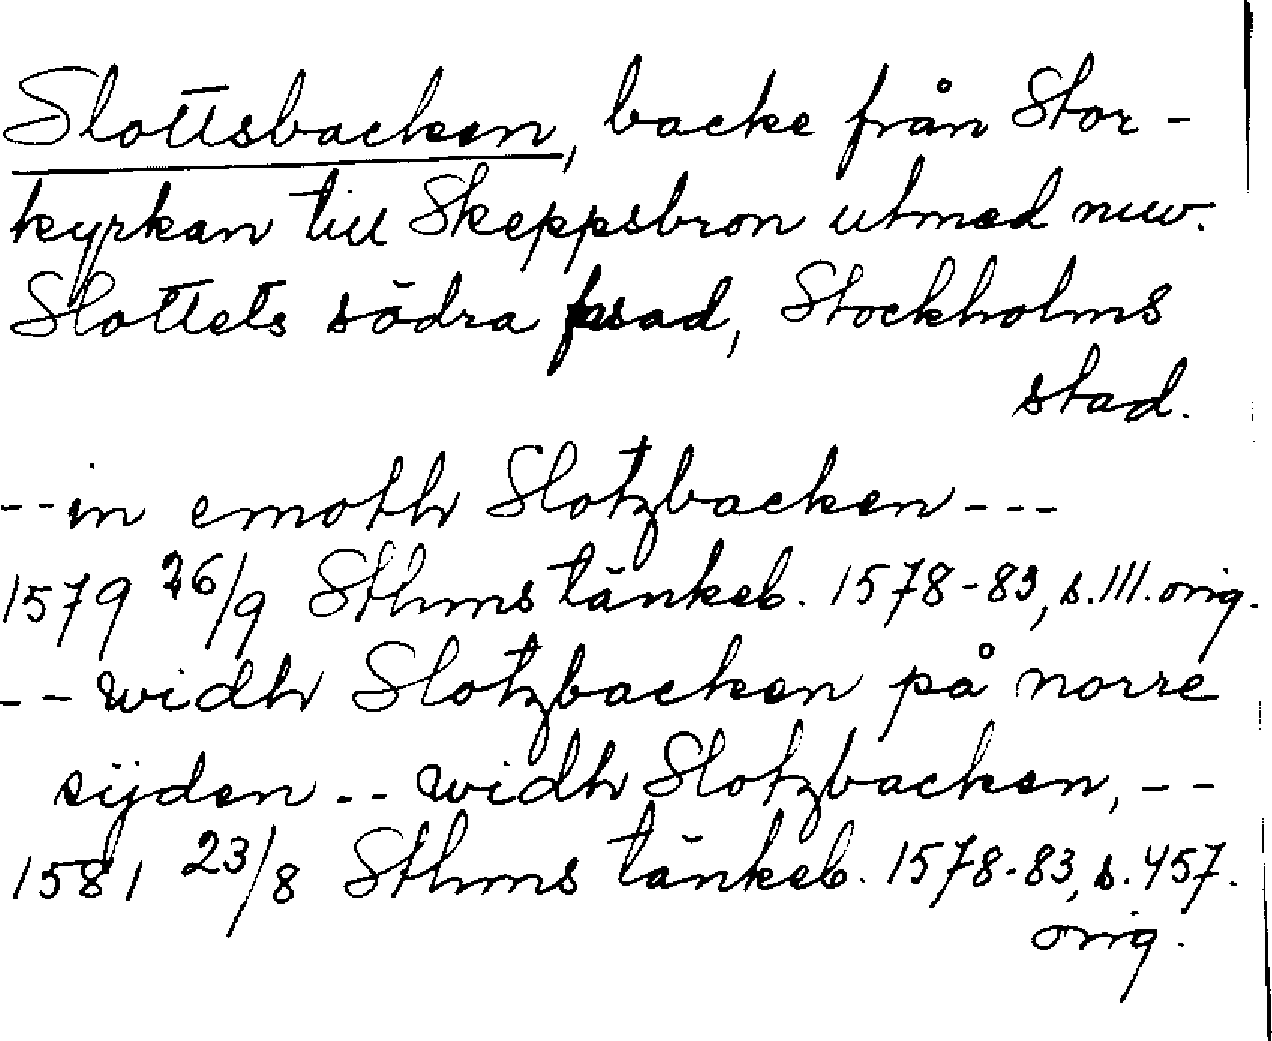 Slottsbacken, backe från Stor-
kyrkan till Skeppsbron utmed nuv.
Slottets södra fasad, Stockholms
stad.
--in emoth Slotzbacken---
1579 26/9 Sthms tänkeb. 1578-83, s.111.orig.
--widh Slotzbacken på norre
sijden -- widh Slotzbacken,--
1581 23/8 Sthms tänkeb. 1578-83, s.457.
orig.